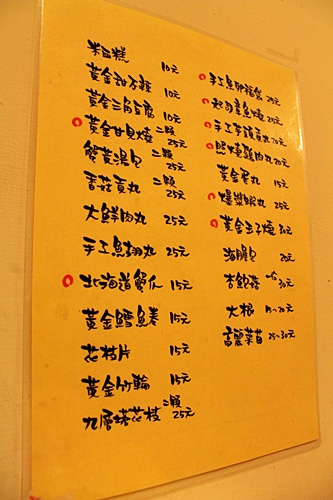 米血糕 10元
黃金甜不辣 10元
黃金三角豆腐 10元
黃金甘貝燒 二顆 25元
蟹黃湯包 二顆 25元
香菇貢丸 二顆 25元
大鮮肉丸 25元
手工魚翅丸 25元
北海道蟹仁 15元
黃金鱈魚卷 15元
花枝片 15元
黃金竹輪 15元
九層塔花枝 二顆 25元
手工魚卵福袋 25元
起司章魚燒 25元
手工芋頭貢丸 20元
照燒雞肉丸 20元
黃金蛋丸 15元
爆漿蝦丸 25元
黃金玉子燒 30元
海膽包 20元
杏鮑菇 一份 30元
大根 15~20元
高麗菜苗 25~30元